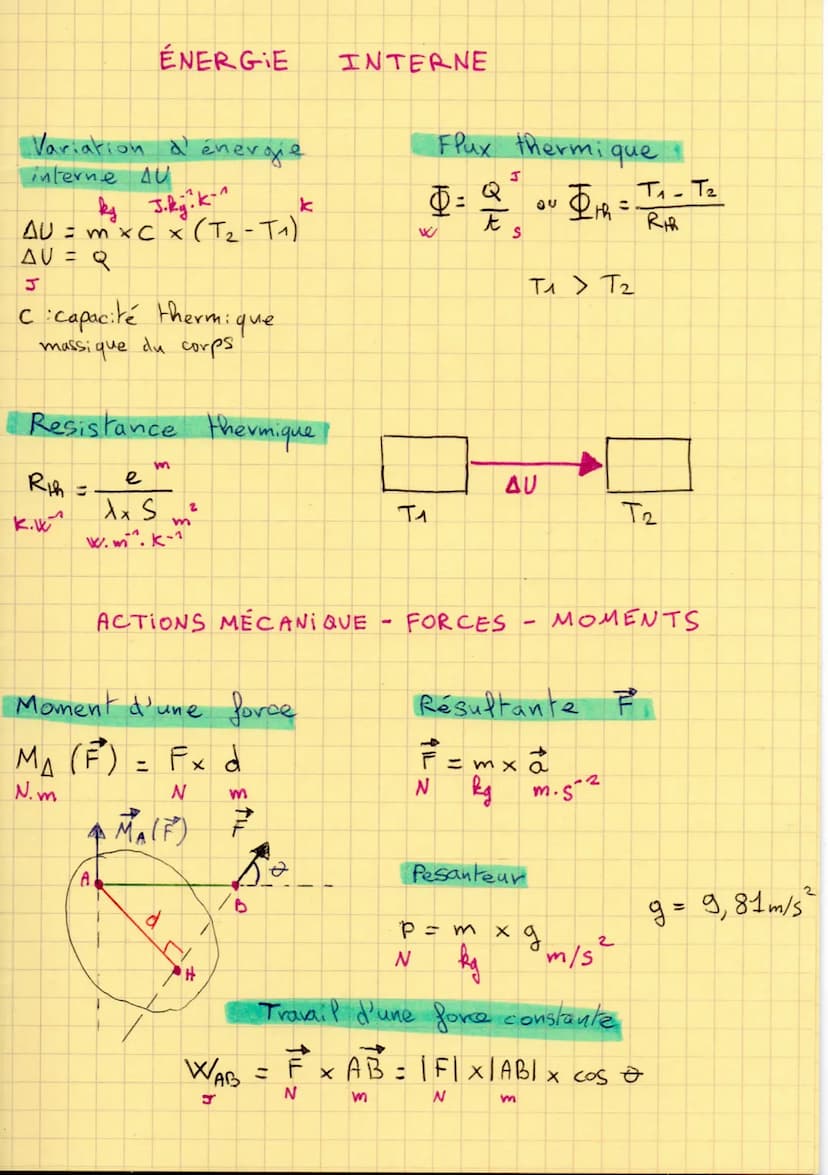 ÉNERGIE INTERNE
Variation d'énergie
interne ΔU
kg J.kg⁻¹.K⁻¹ K
ΔU = m × C × (T₂ - T₁)
ΔU = Q
J
C : capacité thermique
massique du corps
Flux thermique
Φ = Q/t ou Φth = (T₁ - T₂)/Rth
W J s
T₁ > T₂
Resistance thermique
Rth = e/(λ × S)
K.W⁻¹ m m²
W.m⁻¹.K⁻¹
ΔU
T₁ T₂
ACTIONS MÉCANIQUE - FORCES - MOMENTS
Moment d'une force
M_Δ (F⃗) = F × d
N.m N m
M⃗_A(F⃗) F⃗
A θ
B
d
H
Résultante F⃗
F⃗ = m × a⃗
N kg m.s⁻²
Pesanteur
g = 9,81 m/s²
p = m × g
N kg m/s²
Travail d'une force constante
W_AB = F⃗ × AB⃗ = |F| × |AB| × cos θ
J N m N m